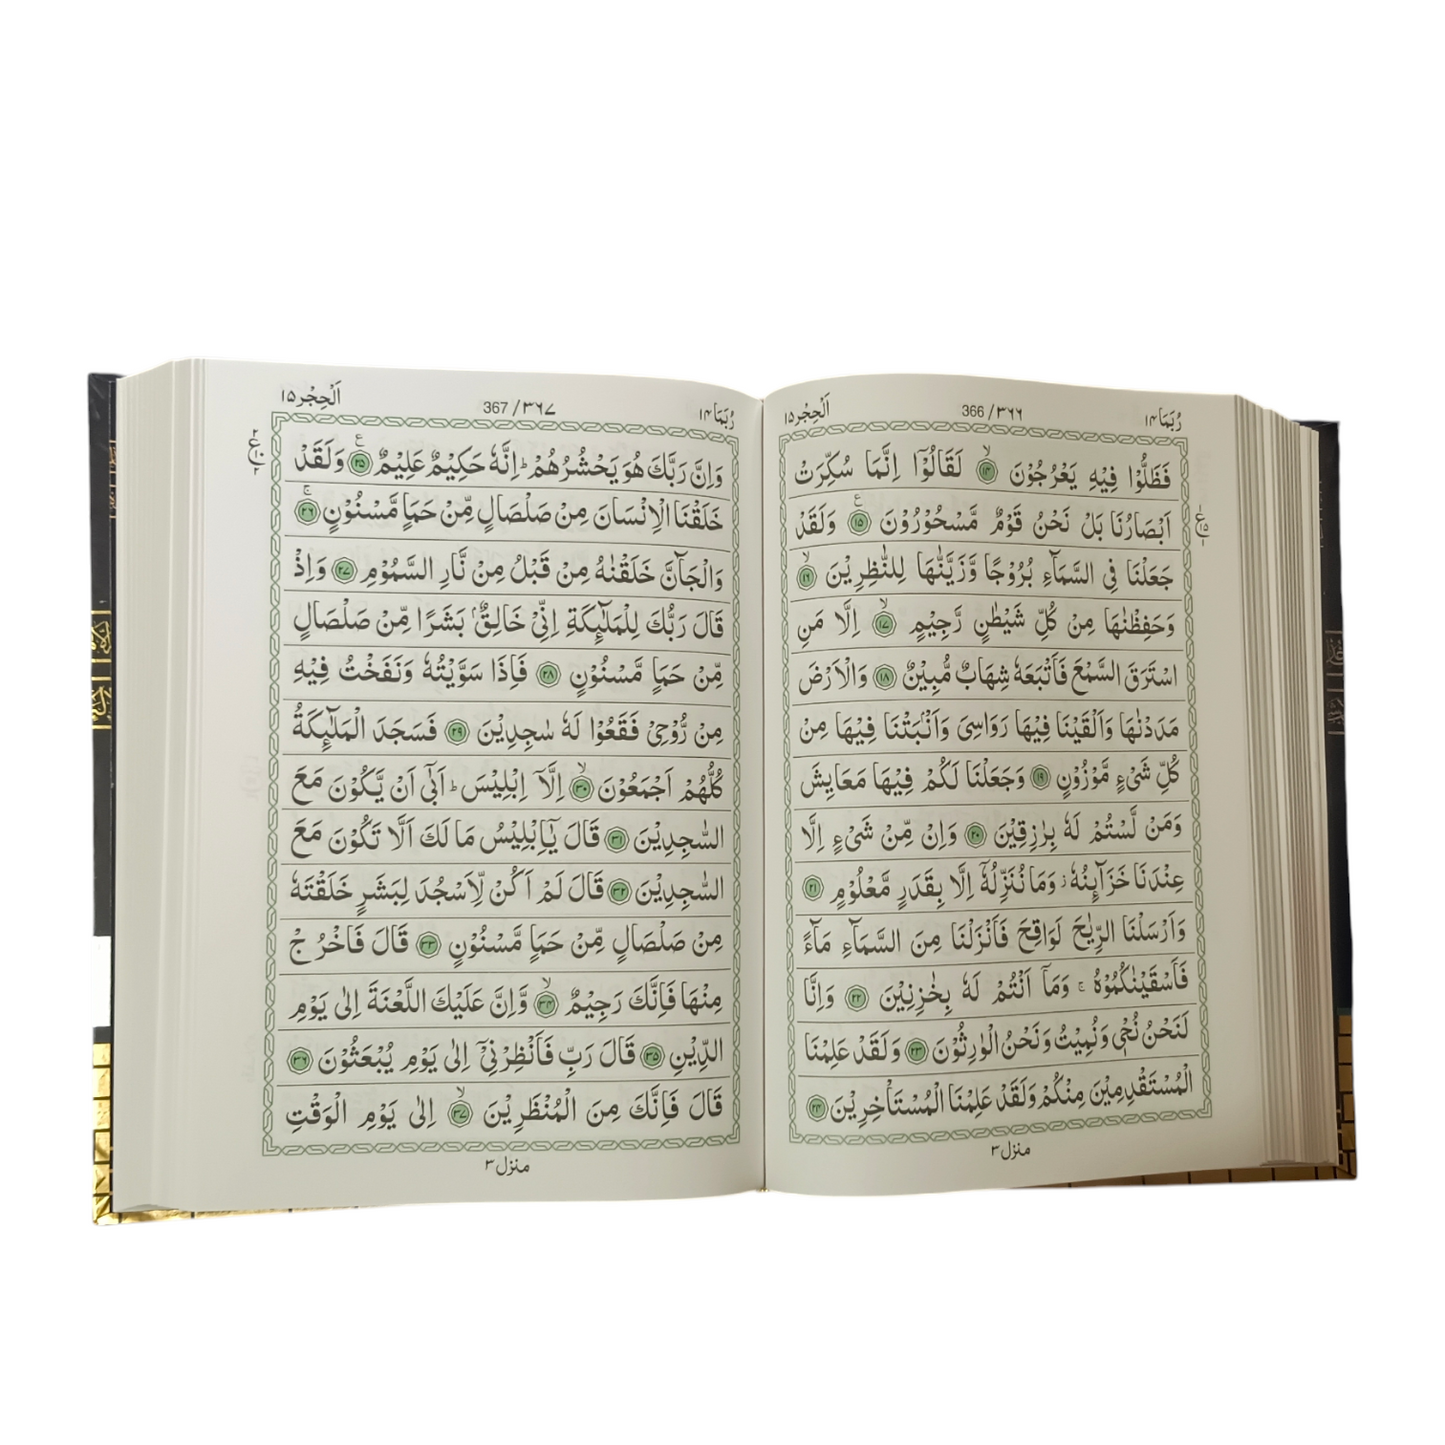 رُبَمَا ۱۴
366 / ۳۶۶
اَلْحِجْر ۱۵
فَظَلُّوْا فِيْهِ يَعْرُجُوْنَ ۙ‏﴿۱۴﴾ لَقَالُوْۤا اِنَّمَا سُكِّرَتْ
اَبْصَارُنَا بَلْ نَحْنُ قَوْمٌ مَّسْحُوْرُوْنَ ‏﴿۱۵﴾ وَلَقَدْ
ع
جَعَلْنَا فِى السَّمَآءِ بُرُوْجًا وَّزَيَّنّٰهَا لِلنّٰظِرِيْنَ ۙ‏﴿۱۶﴾
وَحَفِظْنٰهَا مِنْ كُلِّ شَيْطٰنٍ رَّجِيْمٍ ۙ‏﴿۱۷﴾ اِلَّا مَنِ
اسْتَرَقَ السَّمْعَ فَاَتْبَعَهٗ شِهَابٌ مُّبِيْنٌ ‏﴿۱۸﴾ وَالْاَرْضَ
مَدَدْنٰهَا وَاَلْقَيْنَا فِيْهَا رَوَاسِىَ وَاَنْۢبَتْنَا فِيْهَا مِنْ
كُلِّ شَىْءٍ مَّوْزُوْنٍ ‏﴿۱۹﴾ وَجَعَلْنَا لَكُمْ فِيْهَا مَعَايِشَ
وَمَنْ لَّسْتُمْ لَهٗ بِرٰزِقِيْنَ ‏﴿۲۰﴾ وَاِنْ مِّنْ شَىْءٍ اِلَّا
عِنْدَنَا خَزَآئِنُهٗ ز وَمَا نُنَزِّلُهٗۤ اِلَّا بِقَدَرٍ مَّعْلُوْمٍ ‏﴿۲۱﴾
وَاَرْسَلْنَا الرِّيٰحَ لَوَاقِحَ فَاَنْزَلْنَا مِنَ السَّمَآءِ مَآءً
فَاَسْقَيْنٰكُمُوْهُ ۚ وَمَاۤ اَنْتُمْ لَهٗ بِخٰزِنِيْنَ ‏﴿۲۲﴾ وَاِنَّا
لَنَحْنُ نُحْىٖ وَنُمِيْتُ وَنَحْنُ الْوٰرِثُوْنَ ‏﴿۲۳﴾ وَلَقَدْ عَلِمْنَا
الْمُسْتَقْدِمِيْنَ مِنْكُمْ وَلَقَدْ عَلِمْنَا الْمُسْتَاْخِرِيْنَ ‏﴿۲۴﴾
منزل ۳
رُبَمَا ۱۴
367 / ۳۶۷
اَلْحِجْر ۱۵
وَاِنَّ رَبَّكَ هُوَ يَحْشُرُهُمْ ؕ اِنَّهٗ حَكِيْمٌ عَلِيْمٌ ‏﴿۲۵﴾ وَلَقَدْ
ع
خَلَقْنَا الْاِنْسَانَ مِنْ صَلْصَالٍ مِّنْ حَمَاٍ مَّسْنُوْنٍ ۚ‏﴿۲۶﴾
وَالْجَآنَّ خَلَقْنٰهُ مِنْ قَبْلُ مِنْ نَّارِ السَّمُوْمِ ‏﴿۲۷﴾ وَاِذْ
قَالَ رَبُّكَ لِلْمَلٰٓئِكَةِ اِنِّىْ خَالِقٌۢ بَشَرًا مِّنْ صَلْصَالٍ
مِّنْ حَمَاٍ مَّسْنُوْنٍ ‏﴿۲۸﴾ فَاِذَا سَوَّيْتُهٗ وَنَفَخْتُ فِيْهِ
مِنْ رُّوْحِىْ فَقَعُوْا لَهٗ سٰجِدِيْنَ ‏﴿۲۹﴾ فَسَجَدَ الْمَلٰٓئِكَةُ
كُلُّهُمْ اَجْمَعُوْنَ ۙ‏﴿۳۰﴾ اِلَّاۤ اِبْلِيْسَ ؕ اَبٰٓى اَنْ يَّكُوْنَ مَعَ
السّٰجِدِيْنَ ‏﴿۳۱﴾ قَالَ يٰۤاِبْلِيْسُ مَا لَكَ اَلَّا تَكُوْنَ مَعَ
السّٰجِدِيْنَ ‏﴿۳۲﴾ قَالَ لَمْ اَكُنْ لِّاَسْجُدَ لِبَشَرٍ خَلَقْتَهٗ
مِنْ صَلْصَالٍ مِّنْ حَمَاٍ مَّسْنُوْنٍ ‏﴿۳۳﴾ قَالَ فَاخْرُجْ
مِنْهَا فَاِنَّكَ رَجِيْمٌ ۙ‏﴿۳۴﴾ وَّاِنَّ عَلَيْكَ اللَّعْنَةَ اِلٰى يَوْمِ
الدِّيْنِ ‏﴿۳۵﴾ قَالَ رَبِّ فَاَنْظِرْنِىْۤ اِلٰى يَوْمِ يُبْعَثُوْنَ ‏﴿۳۶﴾
قَالَ فَاِنَّكَ مِنَ الْمُنْظَرِيْنَ ۙ‏﴿۳۷﴾ اِلٰى يَوْمِ الْوَقْتِ
منزل ۳